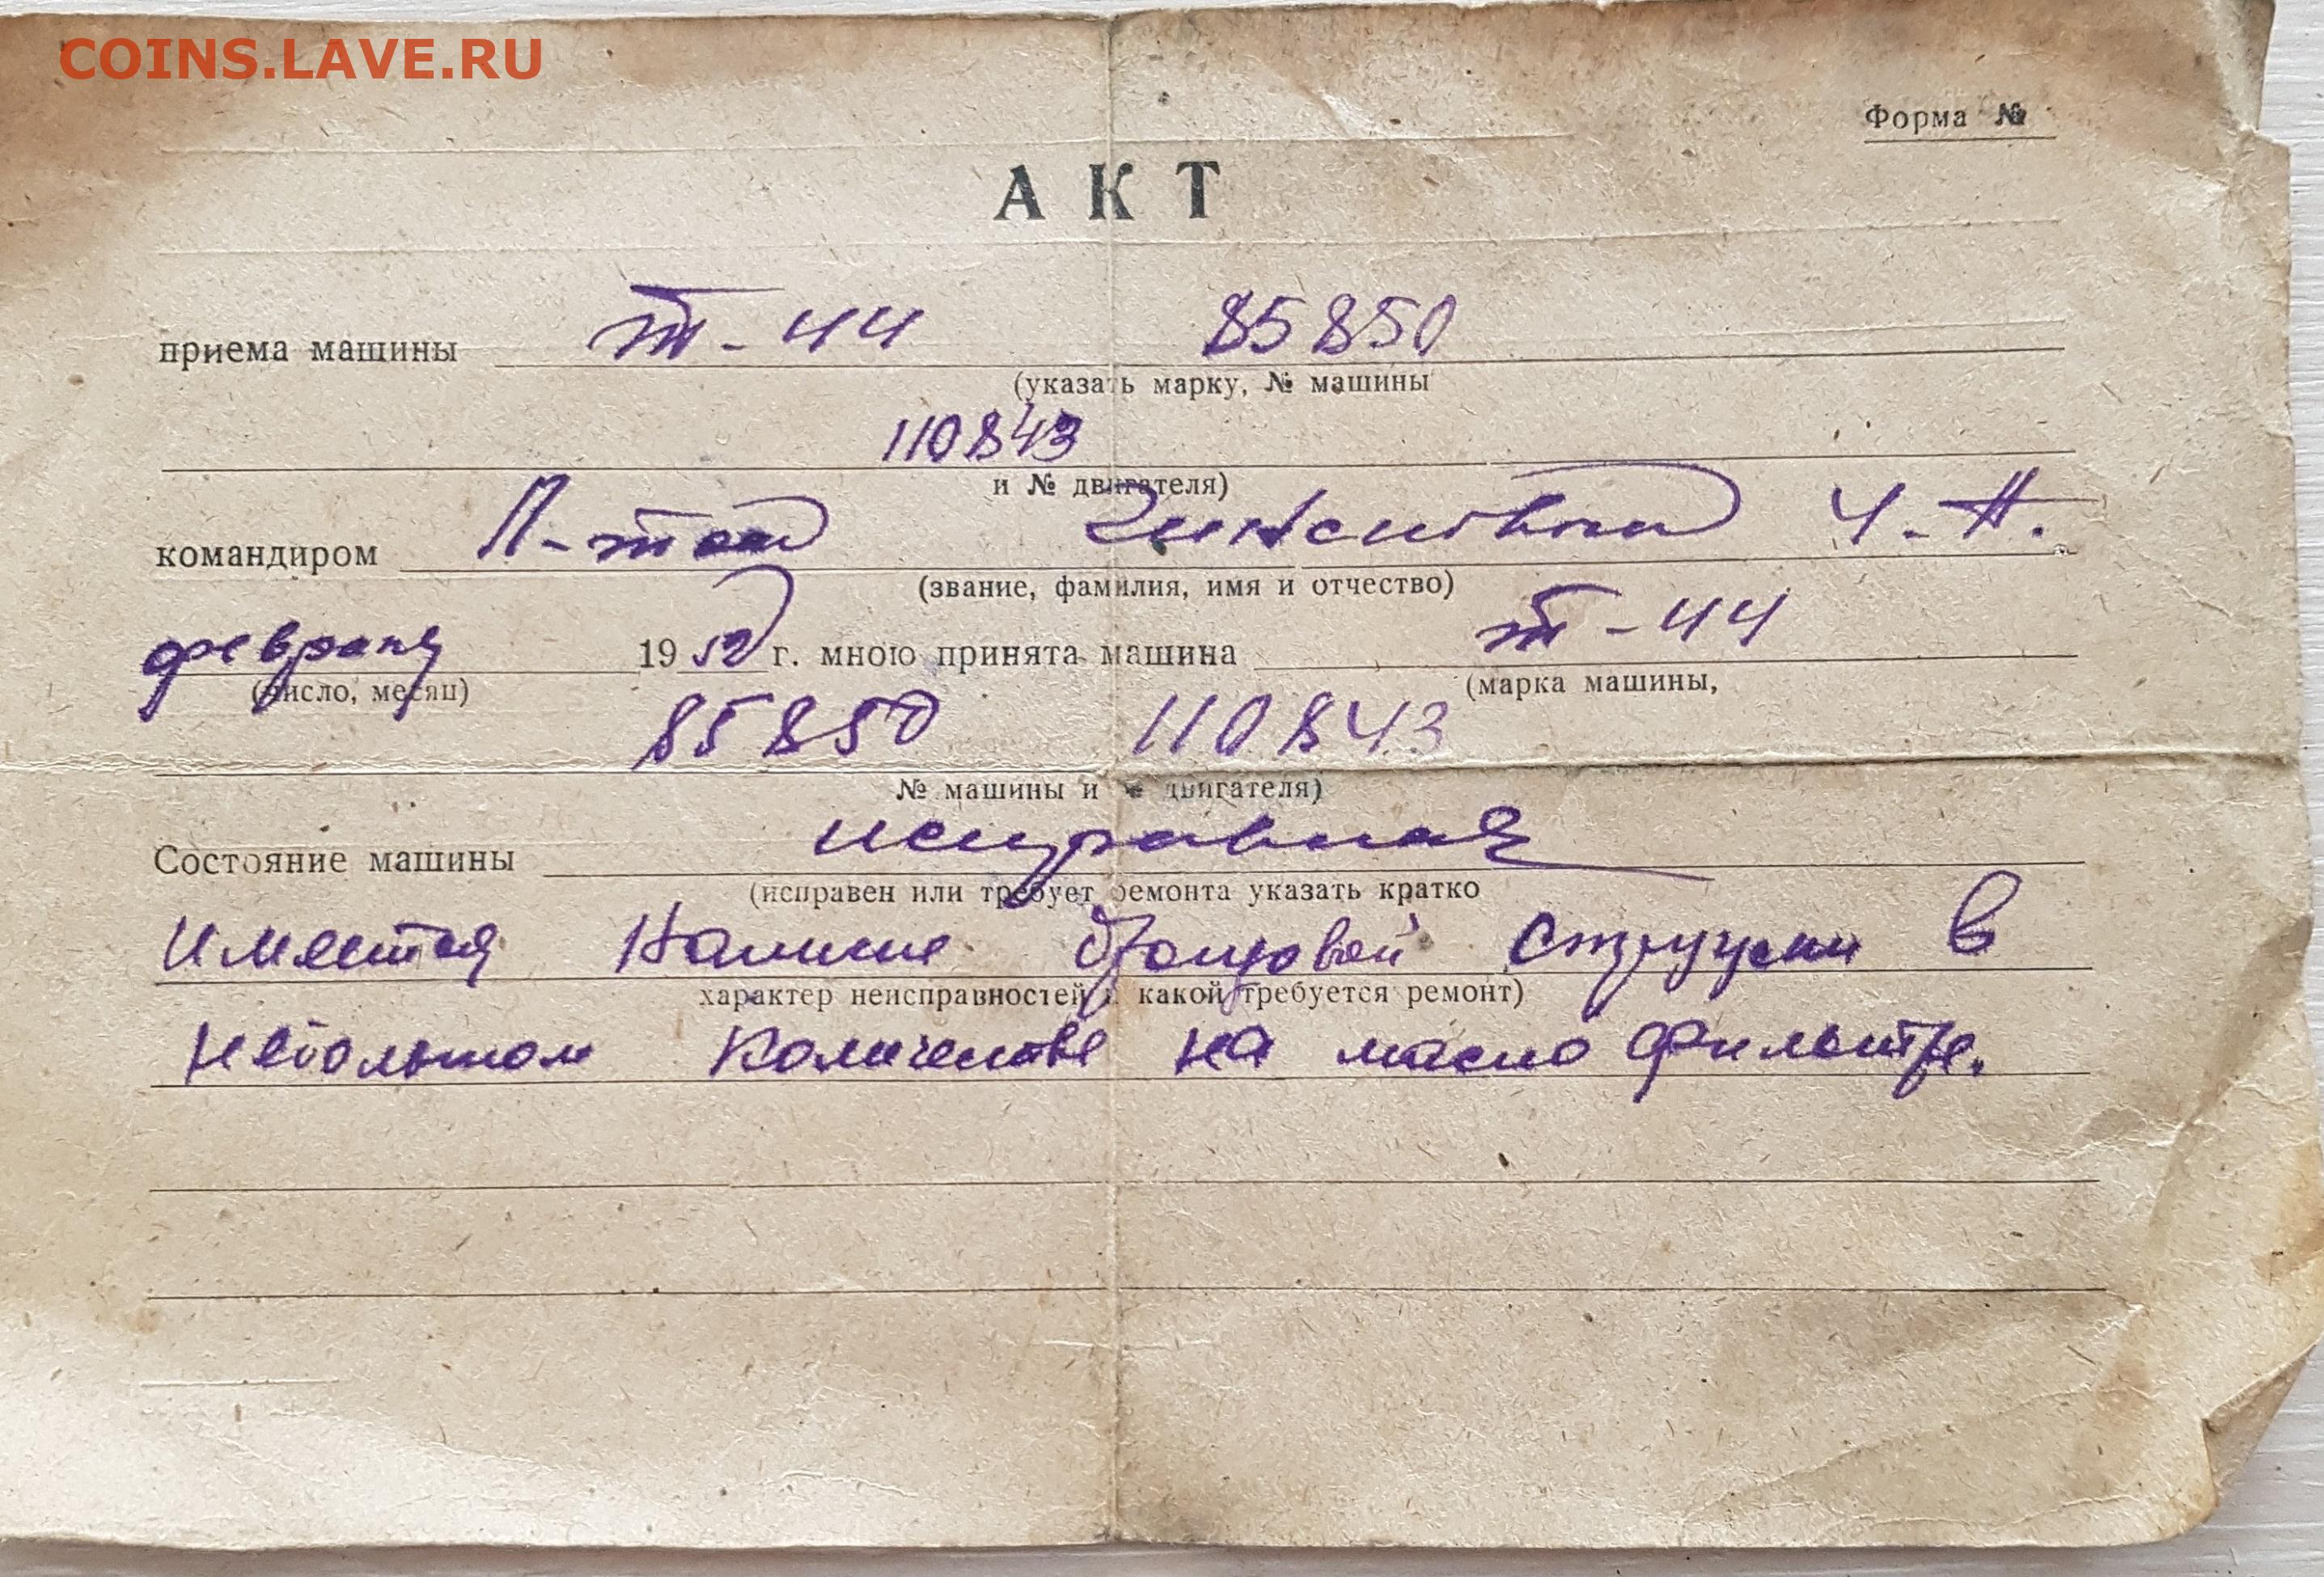 COINS.LAVE.RU
Форма №
АКТ
приема машины Т-44 85850
(указать марку, № машины
110843
и № двигателя)
командиром Л-том
(звание, фамилия, имя и отчество)
февраля 1952 г. мною принята машина Т-44
(число, месяц) (марка машины,
85850 110843
№ машины и № двигателя)
Состояние машины исправная
(исправен или требует ремонта указать кратко
имеется наличие бронзовой стружки в
характер неисправностей и какой требуется ремонт)
небольшом количестве на масло фильтре.